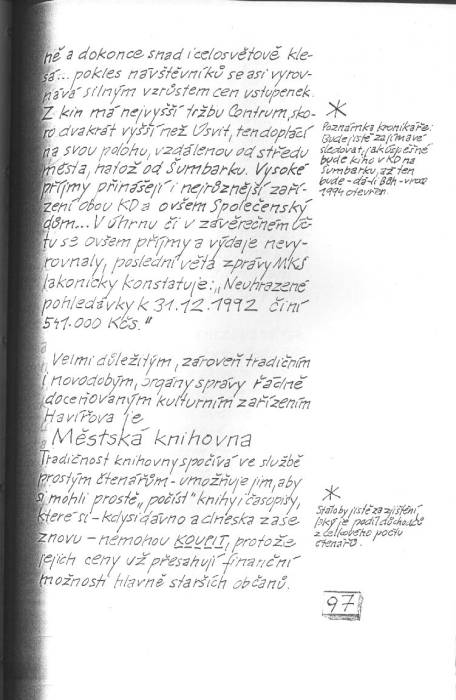 ně a dokonce snad i celosvětově kle-
sá... pokles návštěvníků se asi vyrov-
nává silným vzrůstem cen vstupenek.
Z kin má nejvyšší tržbu Centrum, sko-
ro dvakrát vyšší než Úsvit, ten doplácí
na svou polohu, vzdálenou od středu
města, natož od Šumbarku. Vysoké
příjmy přinášejí i nejrůznější zaří-
zení obou KD a ovšem Společenský
dům... V úhrnu či v závěrečném úč-
tu se ovšem příjmy a výdaje nevy-
rovnaly, poslední věta zprávy MKS
lakonicky konstatuje: „Neuhrazené
pohledávky k 31.12.1992 činí
541.000 Kčs."
Velmi důležitým, zároveň tradičním
i novodobým, orgány správy řádně
doceňovaným kulturním zařízením
Havířova je
Městská knihovna
Tradičnost knihovny spočívá ve službě
prostým čtenářům - umožňuje jim, aby
si mohli prostě „počíst" knihy i časopisy,
které si - kdysi dávno a dneska zase
znovu - nemohou KOUPIT, protože
jejich ceny už přesahují finanční
možnosti hlavně starších občanů.
Poznámka kronikáře:
Bude jistě zajímavé
sledovat, jak úspěšné
bude kino v KD na
Šumbarku, až ten
bude - dá-li Bůh - v roce
1994 otevřen.
Stálo by jistě za zjištění
jaký je podíl důchodců
z celkového počtu
čtenářů.
97